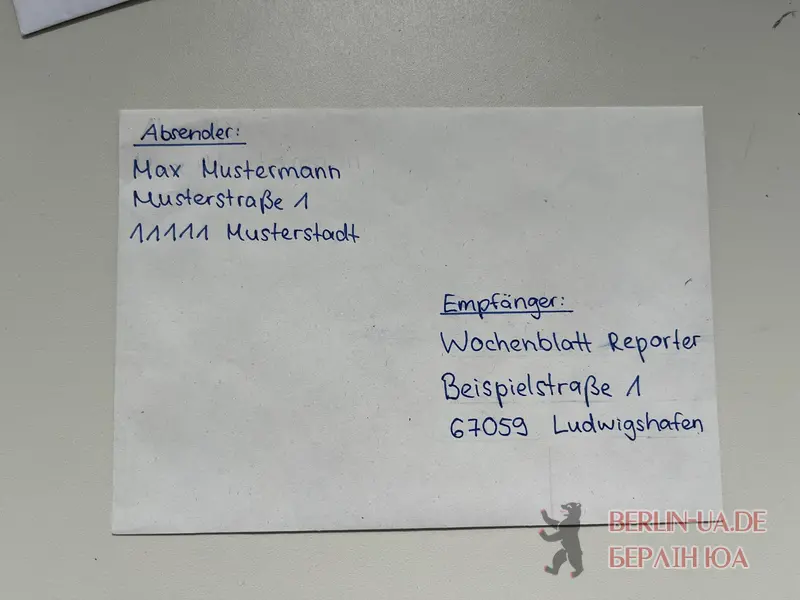 Absender:
Max Mustermann
Musterstraße 1
11111 Musterstadt
Empfänger:
Wochenblatt Reporter
Beispielstraße 1
67059 Ludwigshafen
BERLIN-UA.DE
БЕРЛІН ЮА